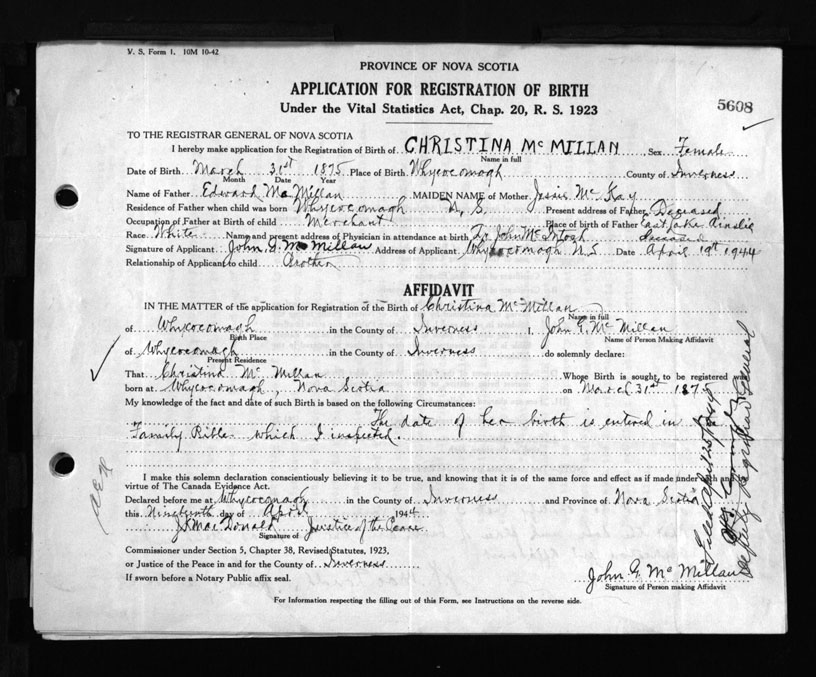 V. S. Form 1. 10M 10-42
PROVINCE OF NOVA SCOTIA
APPLICATION FOR REGISTRATION OF BIRTH
Under the Vital Statistics Act, Chap. 20, R. S. 1923
5608
TO THE REGISTRAR GENERAL OF NOVA SCOTIA
I hereby make application for the Registration of Birth of CHRISTINA McMILLAN, Sex Female
Name in full
Date of Birth March 31st 1875 Place of Birth Whycocomagh County of Inverness
Month Date Year
Name of Father Edward McMillan MAIDEN NAME of Mother Jessie McKay
Residence of Father when child was born Whycocomagh N. S. Present address of Father Deceased
Occupation of Father at Birth of child Merchant Place of Birth of Father East Lake Ainslie
Race White Name and present address of Physician in attendance at birth Dr John McIntosh deceased
Signature of Applicant John G. McMillan Address of Applicant Whycocomagh N.S Date April 19th 1944
Relationship of Applicant to child Brother
AFFIDAVIT
IN THE MATTER of the application for Registration of the Birth of Christina McMillan
Name in full
of Whycocomagh in the County of Inverness I, John G. McMillan
Birth Place Name of Person Making Affidavit
of Whycocomagh in the County of Inverness do solemnly declare:
Present Residence
That Christina McMillan Whose Birth is sought to be registered was
born at Whycocomagh, Nova Scotia on March 31st 1875
My knowledge of the fact and date of such Birth is based on the following Circumstances:
The date of her birth is entered in
Family Bible which I inspected.
I make this solemn declaration conscientiously believing it to be true, and knowing that it is of the same force and effect as if made under oath and
virtue of The Canada Evidence Act.
Declared before me at Whycocomagh in the County of Inverness and Province of Nova Scotia
this Nineteenth day of April 1944
J. MacDonald Justice of the Peace
Signature of
Commissioner under Section 5, Chapter 38, Revised Statutes, 1923,
or Justice of the Peace in and for the County of Inverness
If sworn before a Notary Public affix seal.
John G. McMillan
Signature of Person making Affidavit
For Information respecting the filling out of this Form, see Instructions on the reverse side.
Filed April 25/1944
Deputy Registrar General